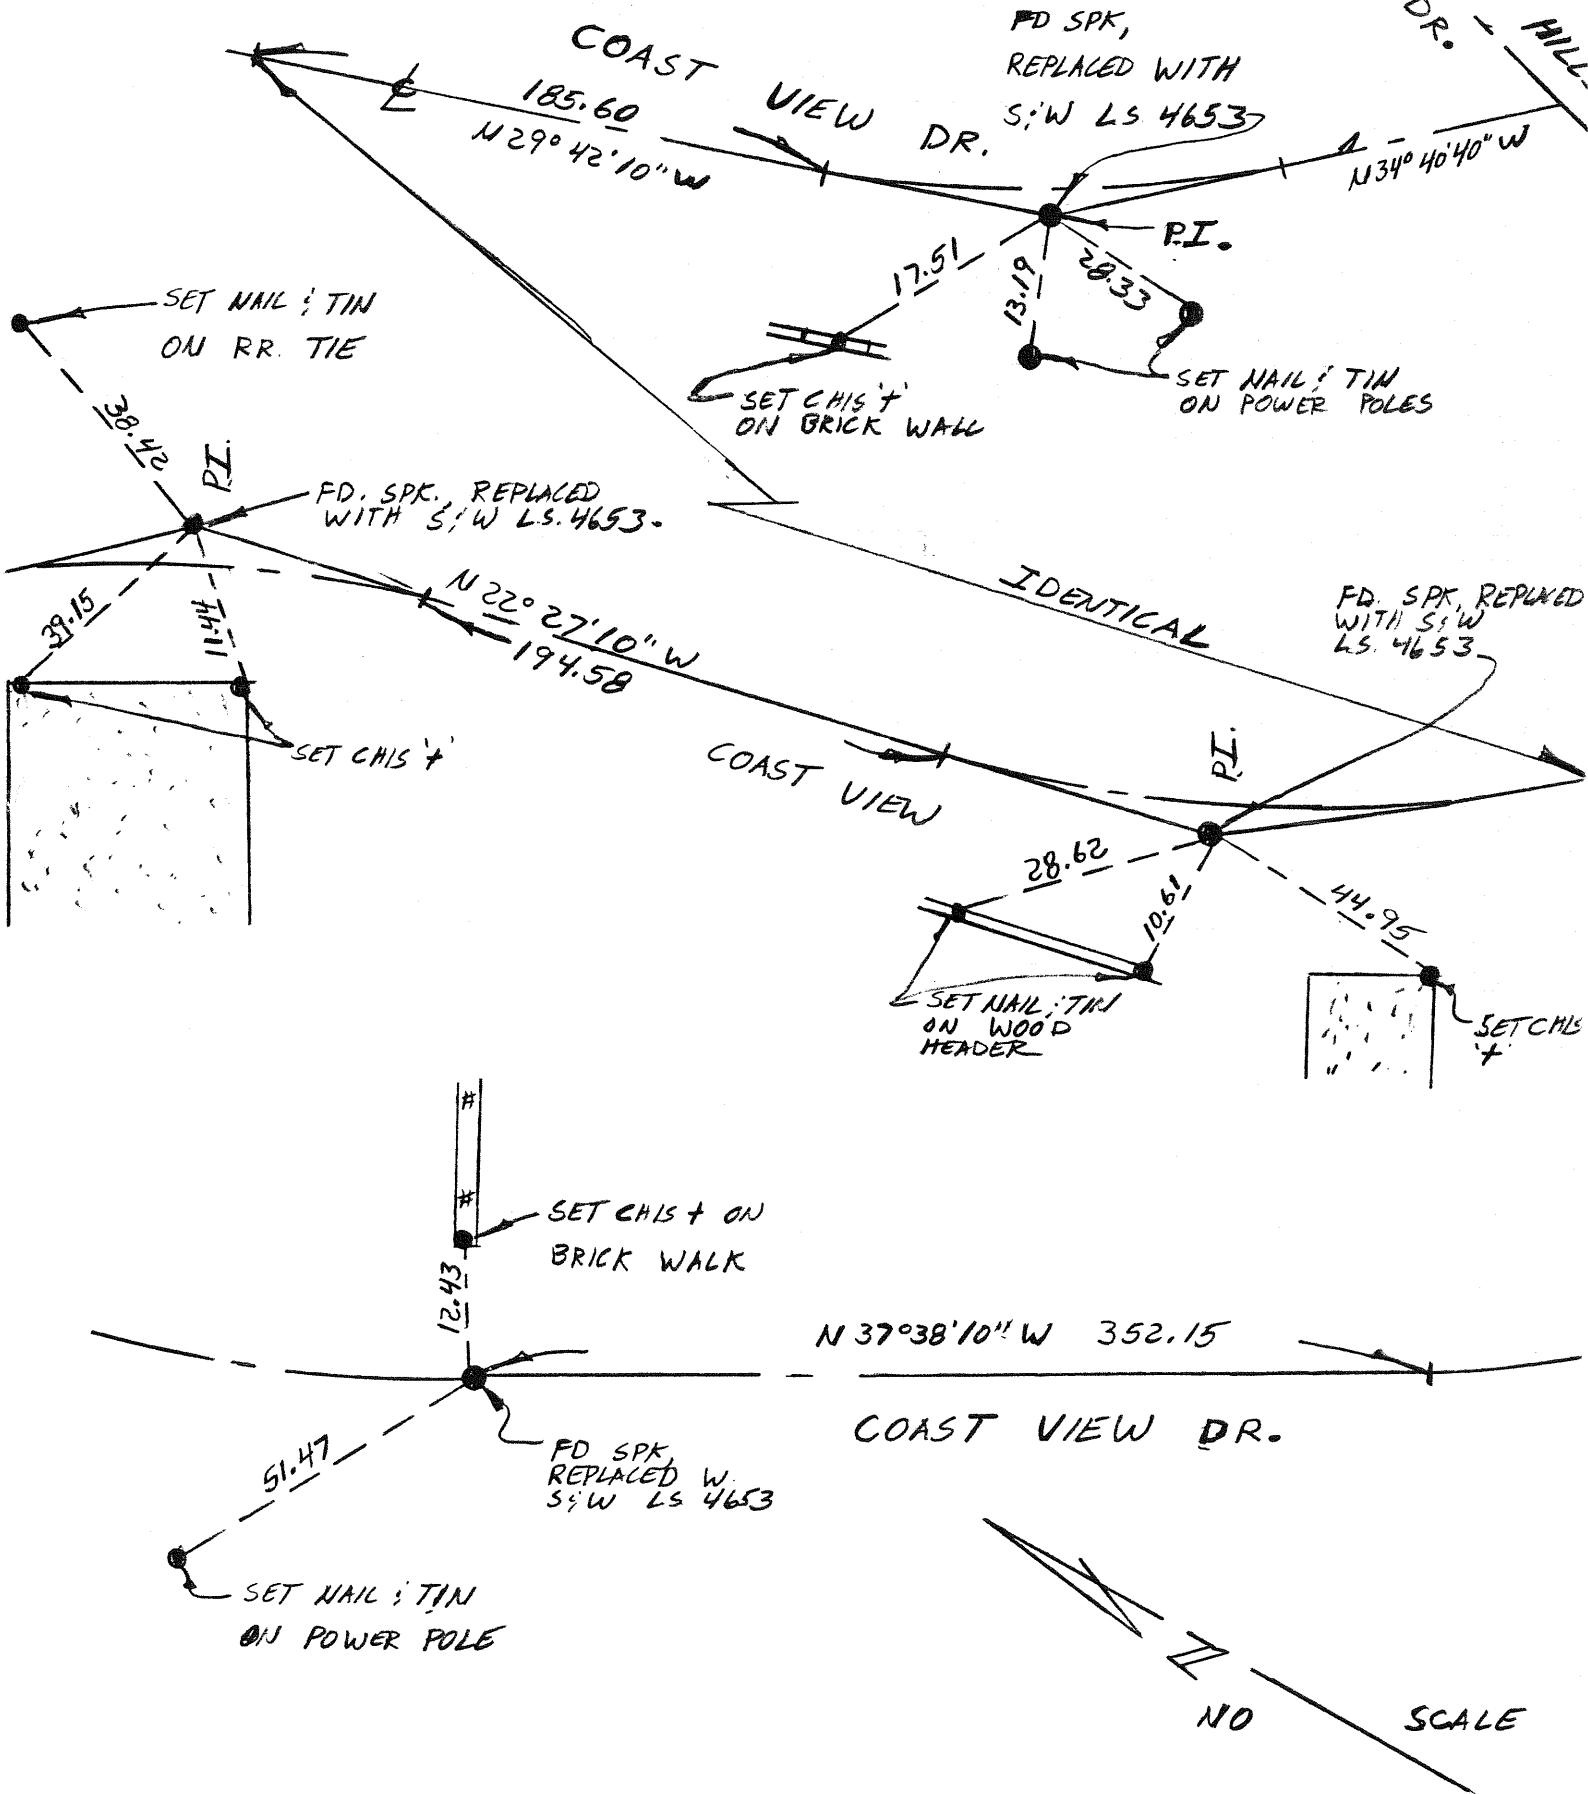 FD SPK,
REPLACED WITH
S;W LS 4653
DR.
HILL
COAST VIEW DR.
℄
185.60
N 29° 42' 10" W
N 34° 40' 40" W
P.I.
17.51
13.19
28.33
SET NAIL ; TIN
ON POWER POLES
SET CHIS '+'
ON BRICK WALL
SET NAIL ; TIN
ON RR. TIE
38.42
P.I.
FD. SPK., REPLACED
WITH S;W LS. 4653.
39.15
11.44
SET CHIS '+'
N 22° 27' 10" W
194.58
IDENTICAL
FD. SPK, REPLACED
WITH S;W
LS. 4653
P.I.
COAST VIEW
28.62
10.61
44.95
SET NAIL ; TIN
ON WOOD
HEADER
SET CHIS
'+'
#
#
SET CHIS + ON
BRICK WALK
12.43
N 37° 38' 10" W 352.15
COAST VIEW DR.
FD SPK,
REPLACED W.
S;W LS 4653
51.47
SET NAIL ; TIN
ON POWER POLE
N
NO SCALE